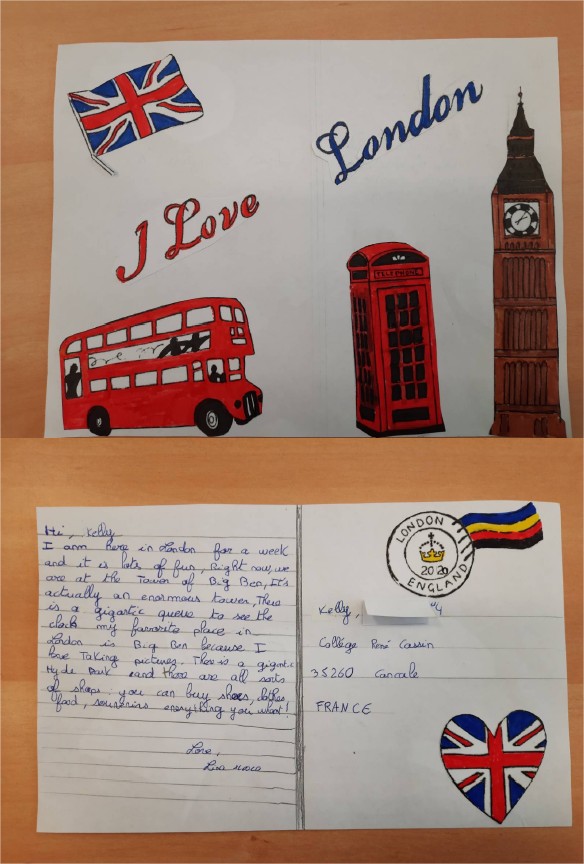 London
I Love
TELEPHONE
Hi, Kelly
I am here in London for a week
and it is lots of fun, Right now, we
are at the Tower of Big Ben, It's
actually an enormous tower, There
is a gigastic queue to see the
clock my favorite place in
London is Big Ben because I
love Takings pictures. There is a gigant
Hyde Park and there are all sorts
of shops: you can buy shoes, clothes,
food, souvenirs everything you want!
Love,
Lisa
LONDON
2020
ENGLAND
Kelly,
Collège René Cassin
35260 Cancale
FRANCE